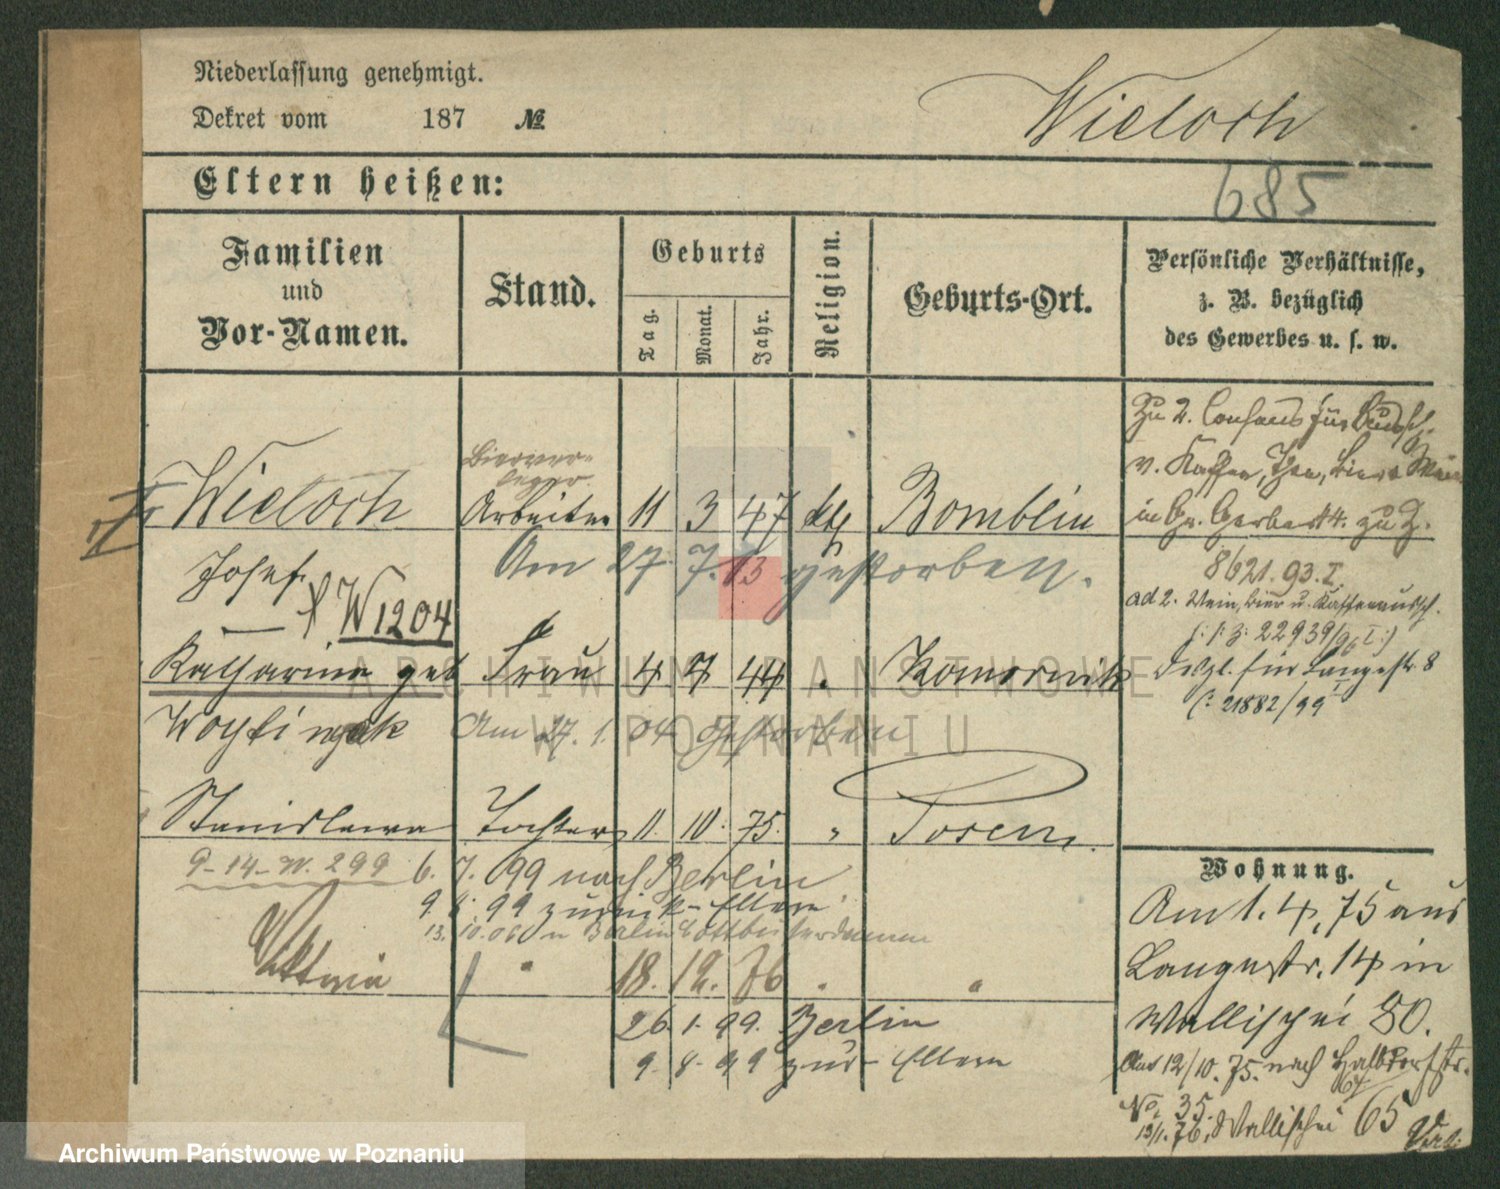 Niederlassung genehmigt.
Dekret vom 187 №
Wieloch
Eltern heißen:
685
Familien und Vor-Namen.
Stand.
Geburts
Tag.
Monat.
Jahr.
Religion.
Geburts-Ort.
Persönliche Verhältnisse,
z. B. bezüglich
des Gewerbes u. s. w.
Wieloch
Bierver-
leger
Arbeiter 11 3 47 kth Bomblin
Josef
Am 27. 7. 13 gestorben.
W1204
Katharina geb Frau 4 7 44 Komornik
Am 27. 1. 04 gestorben
Stanislawa Tochter 11. 10. 75. " Posen.
9-14-W. 299 6. 7. 99 nach Berlin
9. 8. 99 zurück - Eltern
13. 10.06 n Berlin Cottbuserdamm
Viktoria " 18. 12. 76 "
26. 1. 99. Berlin
9. 8. 99 zur- Eltern
Zu 2. Consens für
v. Kaffee, Thee, Bier u Wein
in Gr. Gerberst 4. zu Z.
8621.93.I.
ad 2. Wein, Bier u. Kaffeeaussch.
(: J: Z: 22939/96 I:)
Desgl. für Langestr. 8
(: 21882/99 I
Wohnung.
Am 1. 4, 75 aus
Langestr. 14 in
Wallischei 80.
Am 12/10. 75. nach Halbdorfstr.
No. 35.
13/1. 76, Wallischei 65
ARCHIWUM PAŃSTWOWE
W POZNANIU
Archiwum Państwowe w Poznaniu